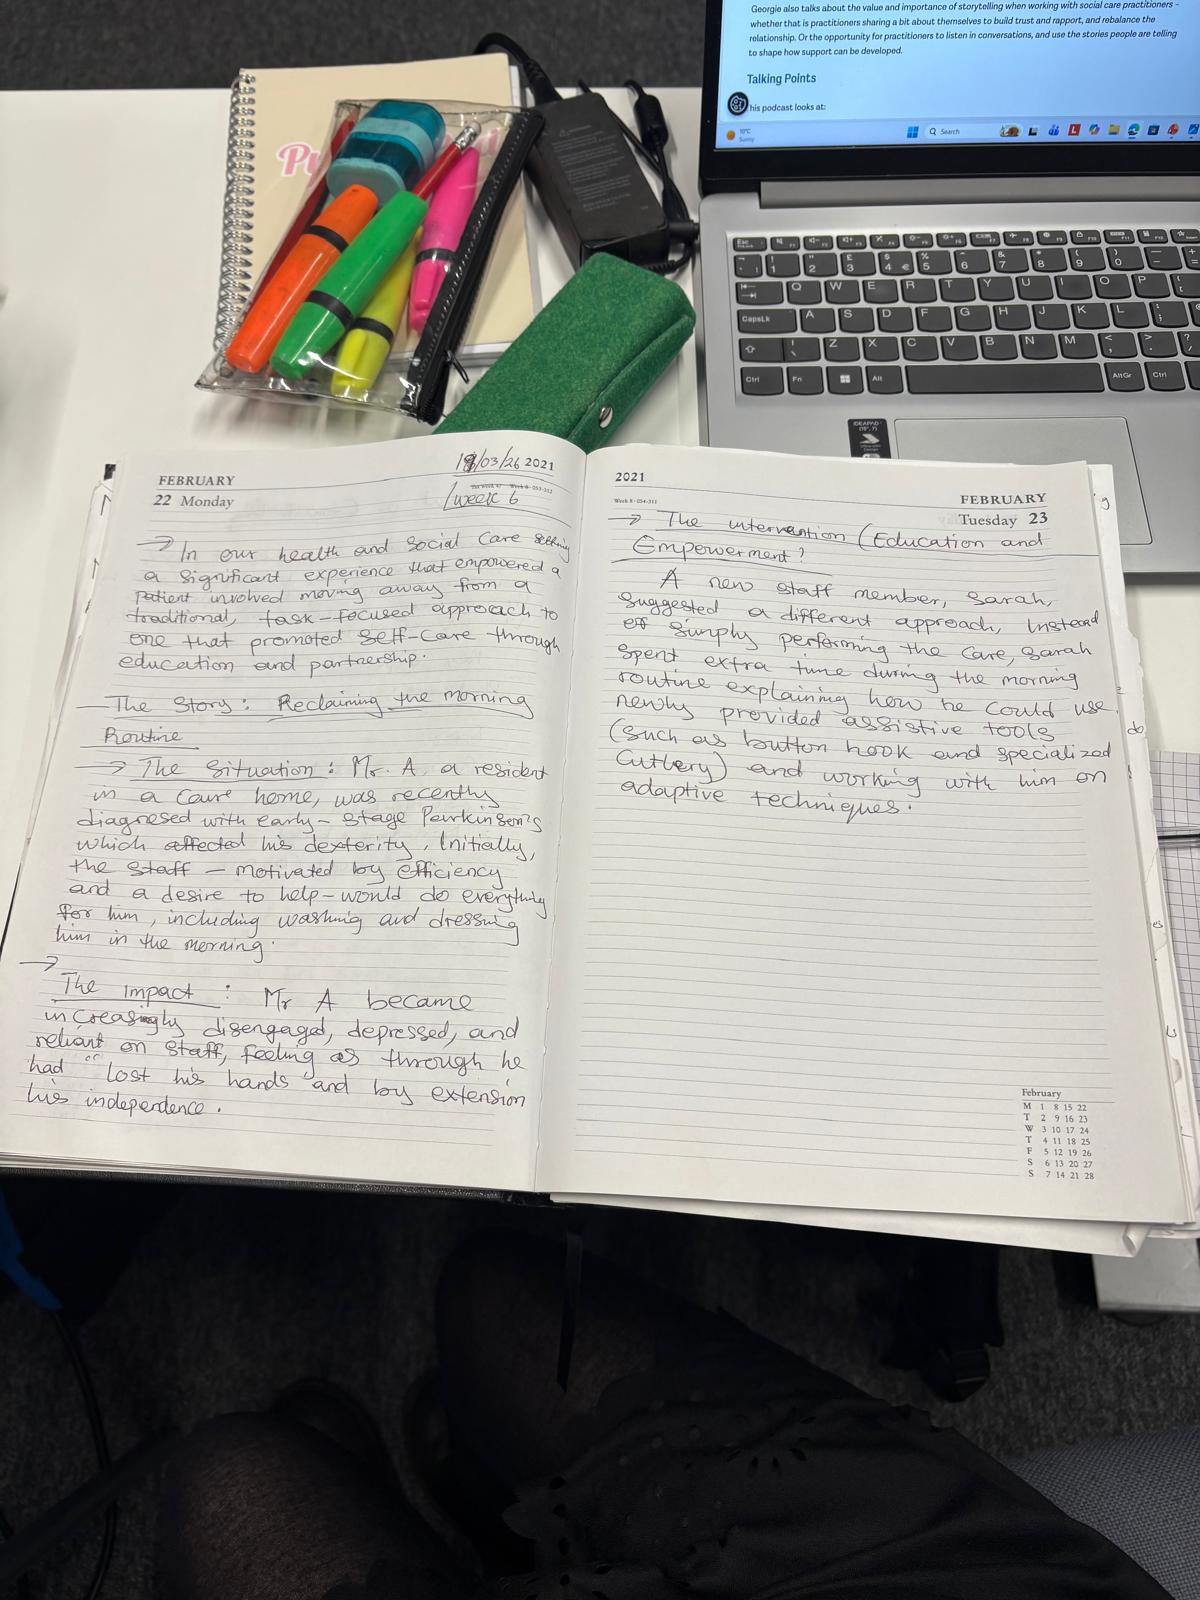 Georgie also talks about the value and importance of storytelling when working with social care practitioners –
whether that is practitioners sharing a bit about themselves to build trust and rapport, and rebalance the
relationship. Or the opportunity for practitioners to listen in conversations, and use the stories people are telling
to shape how support can be developed.
Talking Points
his podcast looks at:
10°C
Sunny
Search
FEBRUARY
22 Monday
/03/26 2021
/week 6
→ In our health and Social Care setting
a significant experience that empowered a
patient involved moving away from a
traditional, task-focused approach to
one that promoted self-Care through
education and partnership.
The Story: Reclaiming the morning
Routine
→ The Situation: Mr. A, a resident
in a Care home, was recently
diagnosed with early-stage Parkinson's
which affected his dexterity, Initially,
the staff – motivated by efficiency
and a desire to help-would do everything
for him, including washing and dressing
him in the morning.
→
The Impact: Mr A became
increasingly disengaged, depressed, and
reliant on staff, feeling as through he
had "lost his hands" and by extension
his independence.
2021
Week 8 · 054-311
FEBRUARY
Tuesday 23
→ The intervention (Education and
Empowerment?
A new staff member, Sarah,
suggested a different approach, Instead
of simply performing the Care, Sarah
spent extra time during the morning
routine explaining how he could use
newly provided assistive tools
(such as button hook and specialized
Cutlery) and working with him on
adaptive techniques.
February
M 1 8 15 22
T 2 9 16 23
W 3 10 17 24
T 4 11 18 25
F 5 12 19 26
S 6 13 20 27
S 7 14 21 28